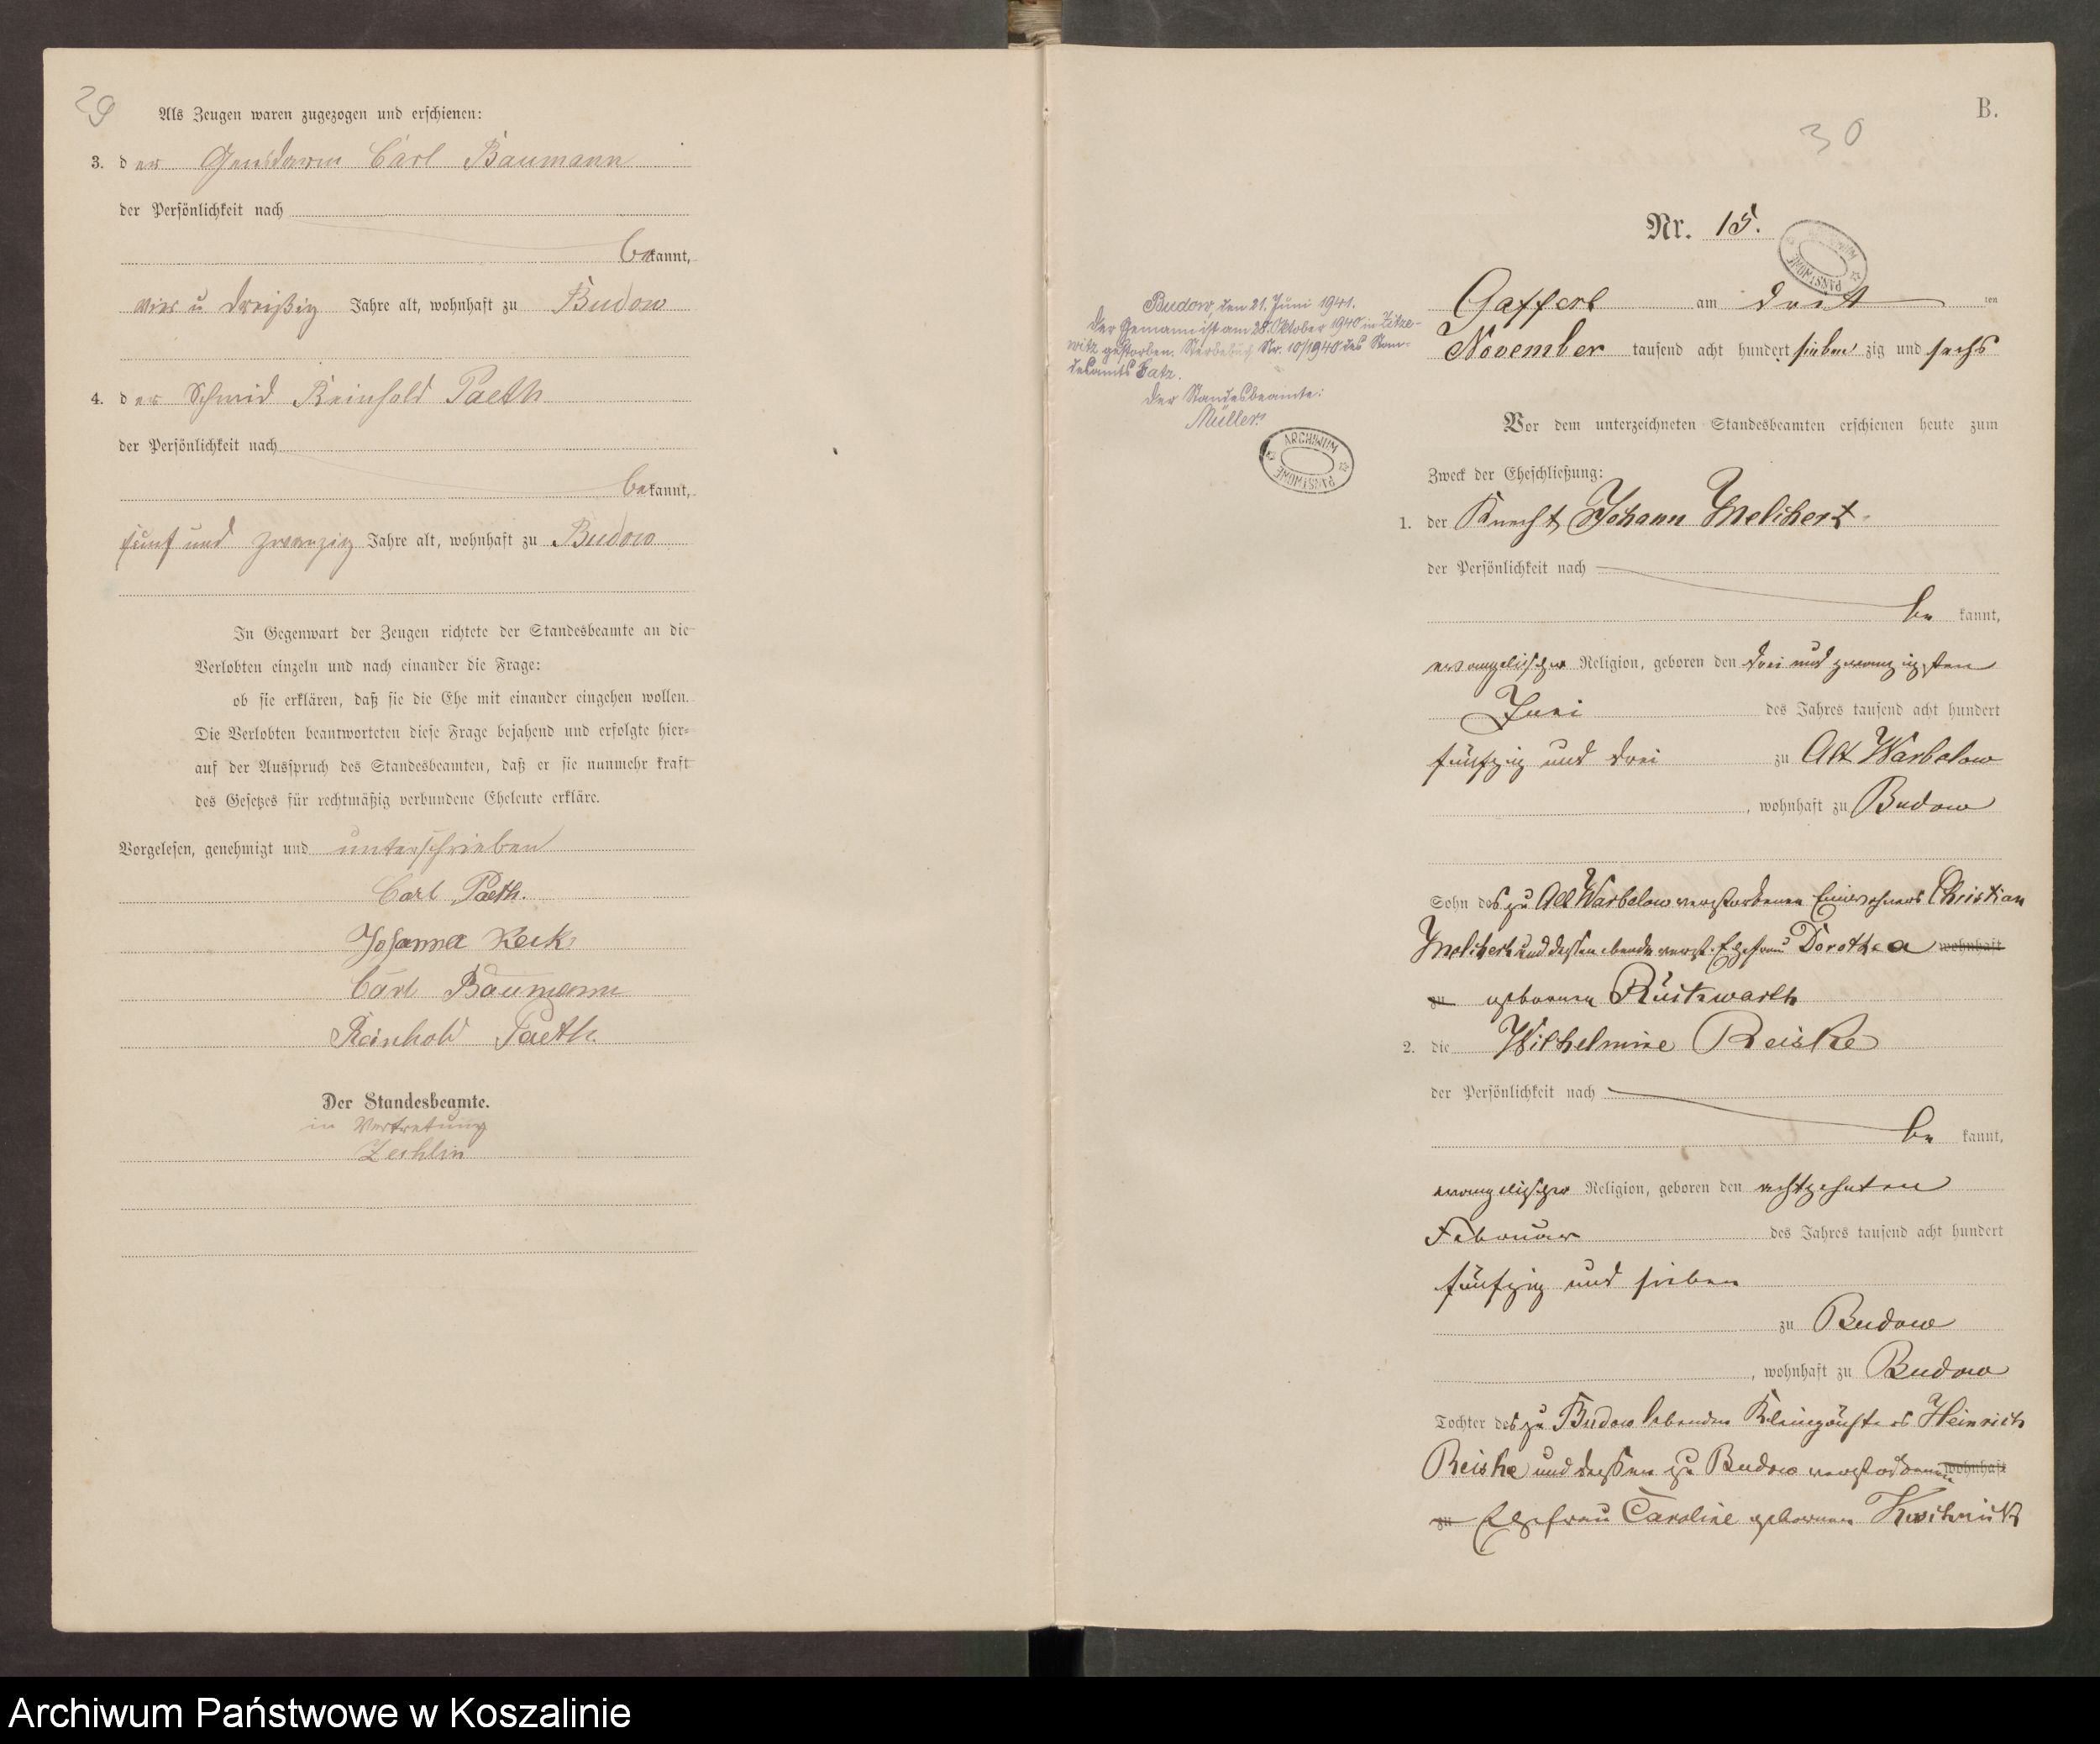 29
Als Zeugen waren zugezogen und erschienen:
3. der Gensdarm Carl Baumann
der Persönlichkeit nach
bekannt,
vier u dreißig Jahre alt, wohnhaft zu Budow
4. der Schmid Reinhold Paeth
der Persönlichkeit nach
bekannt,
fünf und zwanzig Jahre alt, wohnhaft zu Budow
In Gegenwart der Zeugen richtete der Standesbeamte an die
Verlobten einzeln und nach einander die Frage:
ob sie erklären, daß sie die Ehe mit einander eingehen wollen.
Die Verlobten beantworteten diese Frage bejahend und erfolgte hier-
auf der Ausspruch des Standesbeamten, daß er sie nunmehr kraft
des Gesetzes für rechtmäßig verbundene Eheleute erkläre.
Vorgelesen, genehmigt und unterschrieben
Carl Paeth.
Johanna Keck
Carl Baumann
Reinhold Paeth.
Der Standesbeamte.
in Vertretung
Zechlin
B.
30
Nr. 15.
ARCHIWUM PAŃSTWOWE
Gaffert am drit ten
November tausend acht hundert sieben zig und sechs
Budow, den 21. Juni 1941.
Der Ehemann ist am 28. Oktober 1940 in Zitze-
witz gestorben. Sterbebuch Nr. 10/1940 des Stan-
desamts Gatz.
Der Standesbeamte:
Müller
ARCHIWUM PAŃSTWOWE
Vor dem unterzeichneten Standesbeamten erschienen heute zum
Zweck der Eheschließung:
1. der Knecht Johann Melchert
der Persönlichkeit nach
be kannt,
evangelischer Religion, geboren den drei und zwanzigsten
Juni des Jahres tausend acht hundert
fünfzig und drei zu Alt Warbelow
, wohnhaft zu Budow
Sohn des zu Alt Warbelow verstorbenen Einwohners Christian
Melchert und dessen ebenda verst. Ehefrau Dorothea wohnhaft
zu geborenen
2. die Wilhelmine Reiske
der Persönlichkeit nach
be kannt,
evangelischer Religion, geboren den achtzehnten
Februar des Jahres tausend acht hundert
fünfzig und sieben
zu Budow
, wohnhaft zu Budow
Tochter des zu Budow lebenden Heinrich
Reiske und dessen zu Budow verstorbenen wohnhaft
zu Ehefrau Caroline geborenen
Archiwum Państwowe w Koszalinie